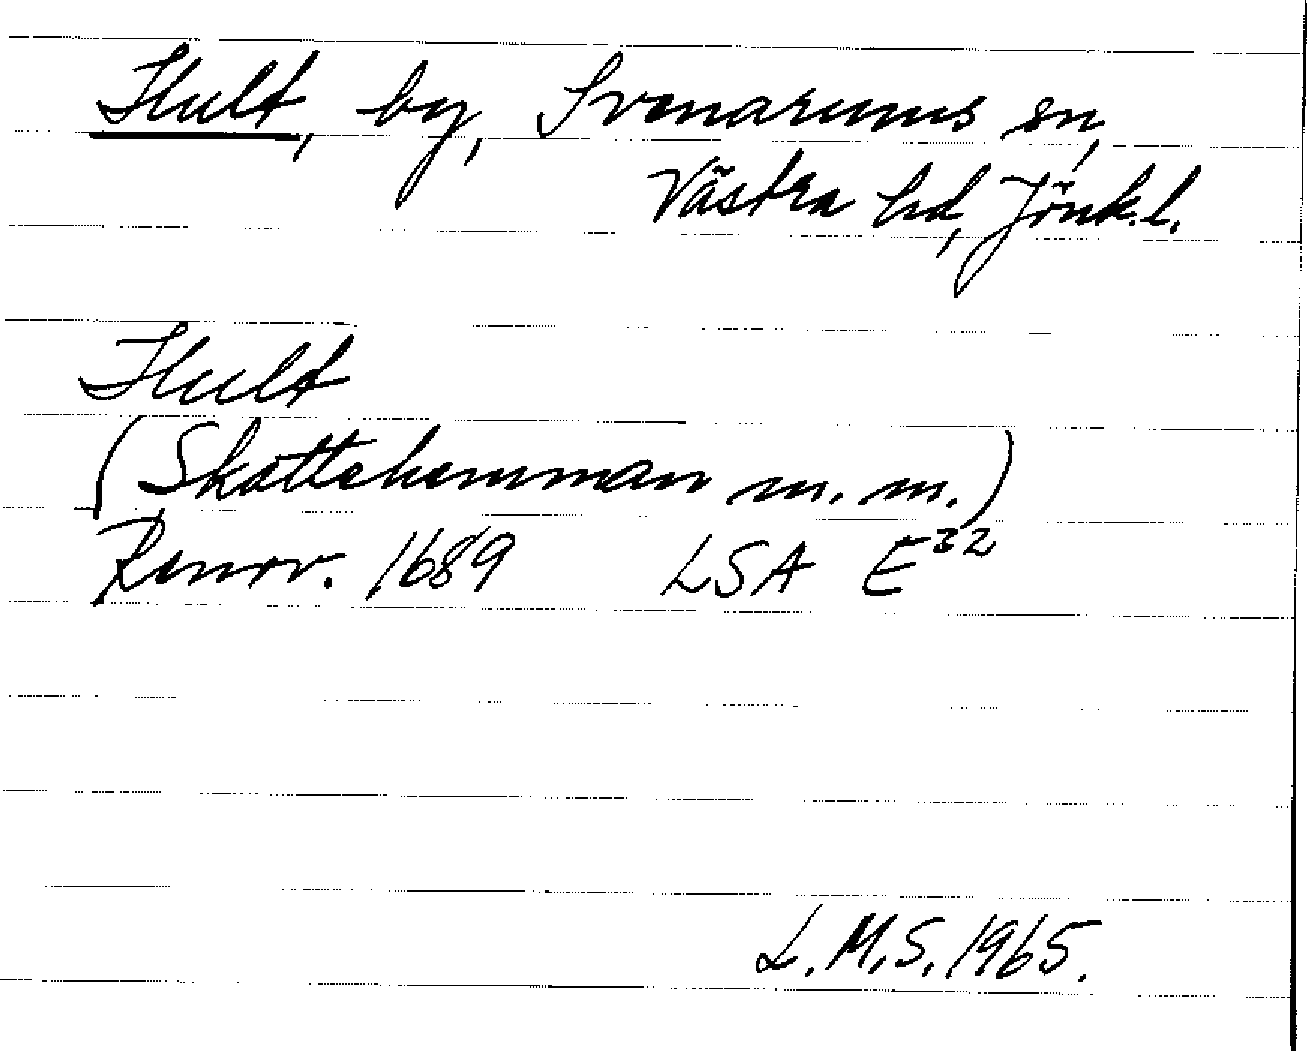 Hult, by, Svenarums sn,
Västra hd, Jönk.l.
Hult
(Skattehemman m.m.)
Renov. 1689 LSA E³²
L.M.S. 1965.